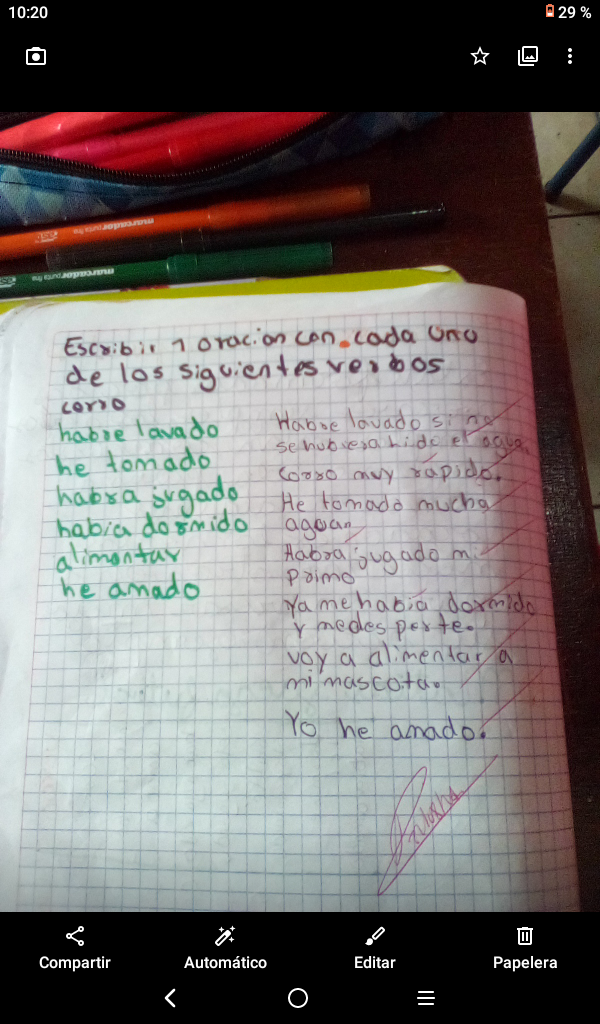 10:20
29 %
marcador punta fina
marcador punta fina
Escribir 1 oracion con cada uno
de los siguientes verbos
corro
habre lavado
he tomado
habra jugado
habia dormido
alimentar
he amado
Habre lavado si no
se hubiera hido el agua.
Corro muy rápido.
He tomado mucha
aguan
Habra jugado mi
primo
Ya me había dormido
y medes perte.
voy a alimentar a
mi mascota.
Yo he amado.
Compartir
Automático
Editar
Papelera